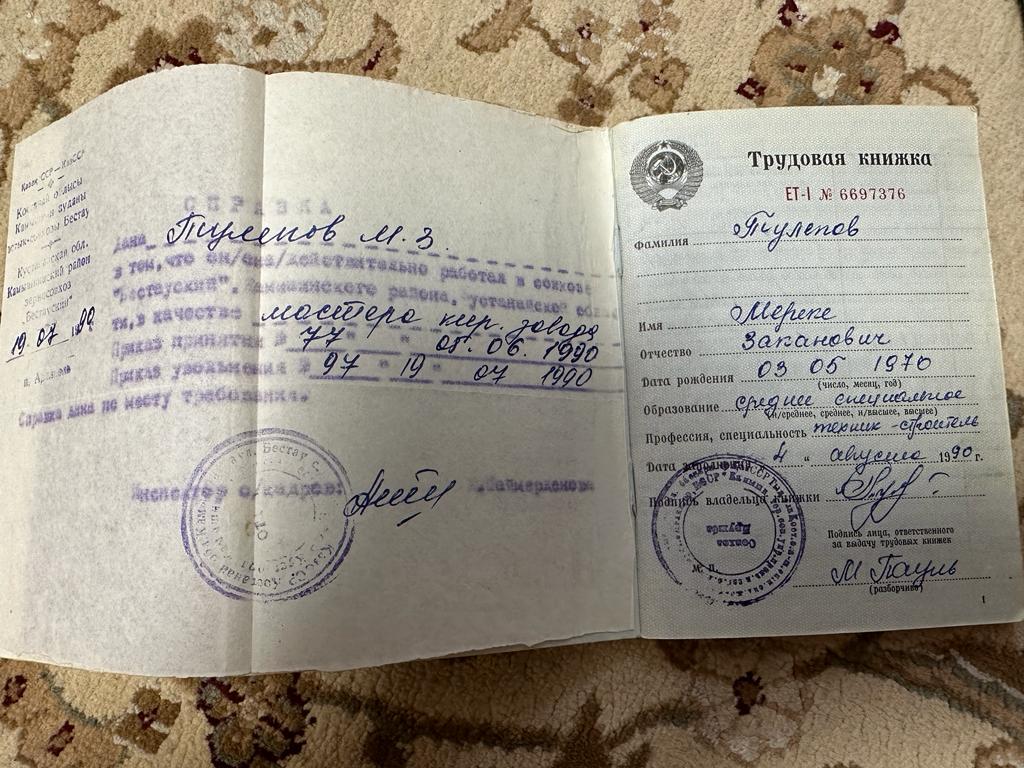 Казак ССР — КазССР
Камышинский район
зерносовхоз
"Бестауский"
19 07 1990
СПРАВКА
Дана Тулепов М.З.
в том, что он/она/действительно работал в совхозе
"Бестауский", Камышинского района,
ти, в качестве мастера кир. завода
Приказ принятия № 77 " " 05.06.1990
Приказ увольнения № 97 " 19 " 07 1990
Справка дана по месту требования.
Инспектор о/кадров:
Трудовая книжка
ЕТ-I № 6697376
Фамилия Тулепов
Имя Мереке
Отчество Законович
Дата рождения 03 05 1970
(число, месяц, год)
Образование среднее специальное
(н/среднее, среднее, н/высшее, высшее)
Профессия, специальность техник-строитель
Дата заполнения 4 " августа 1990 г.
Подпись владельца книжки
Подпись лица, ответственного
за выдачу трудовых книжек
М. П.
М Пауль
(разборчиво)
Совхоз
Дружба
1